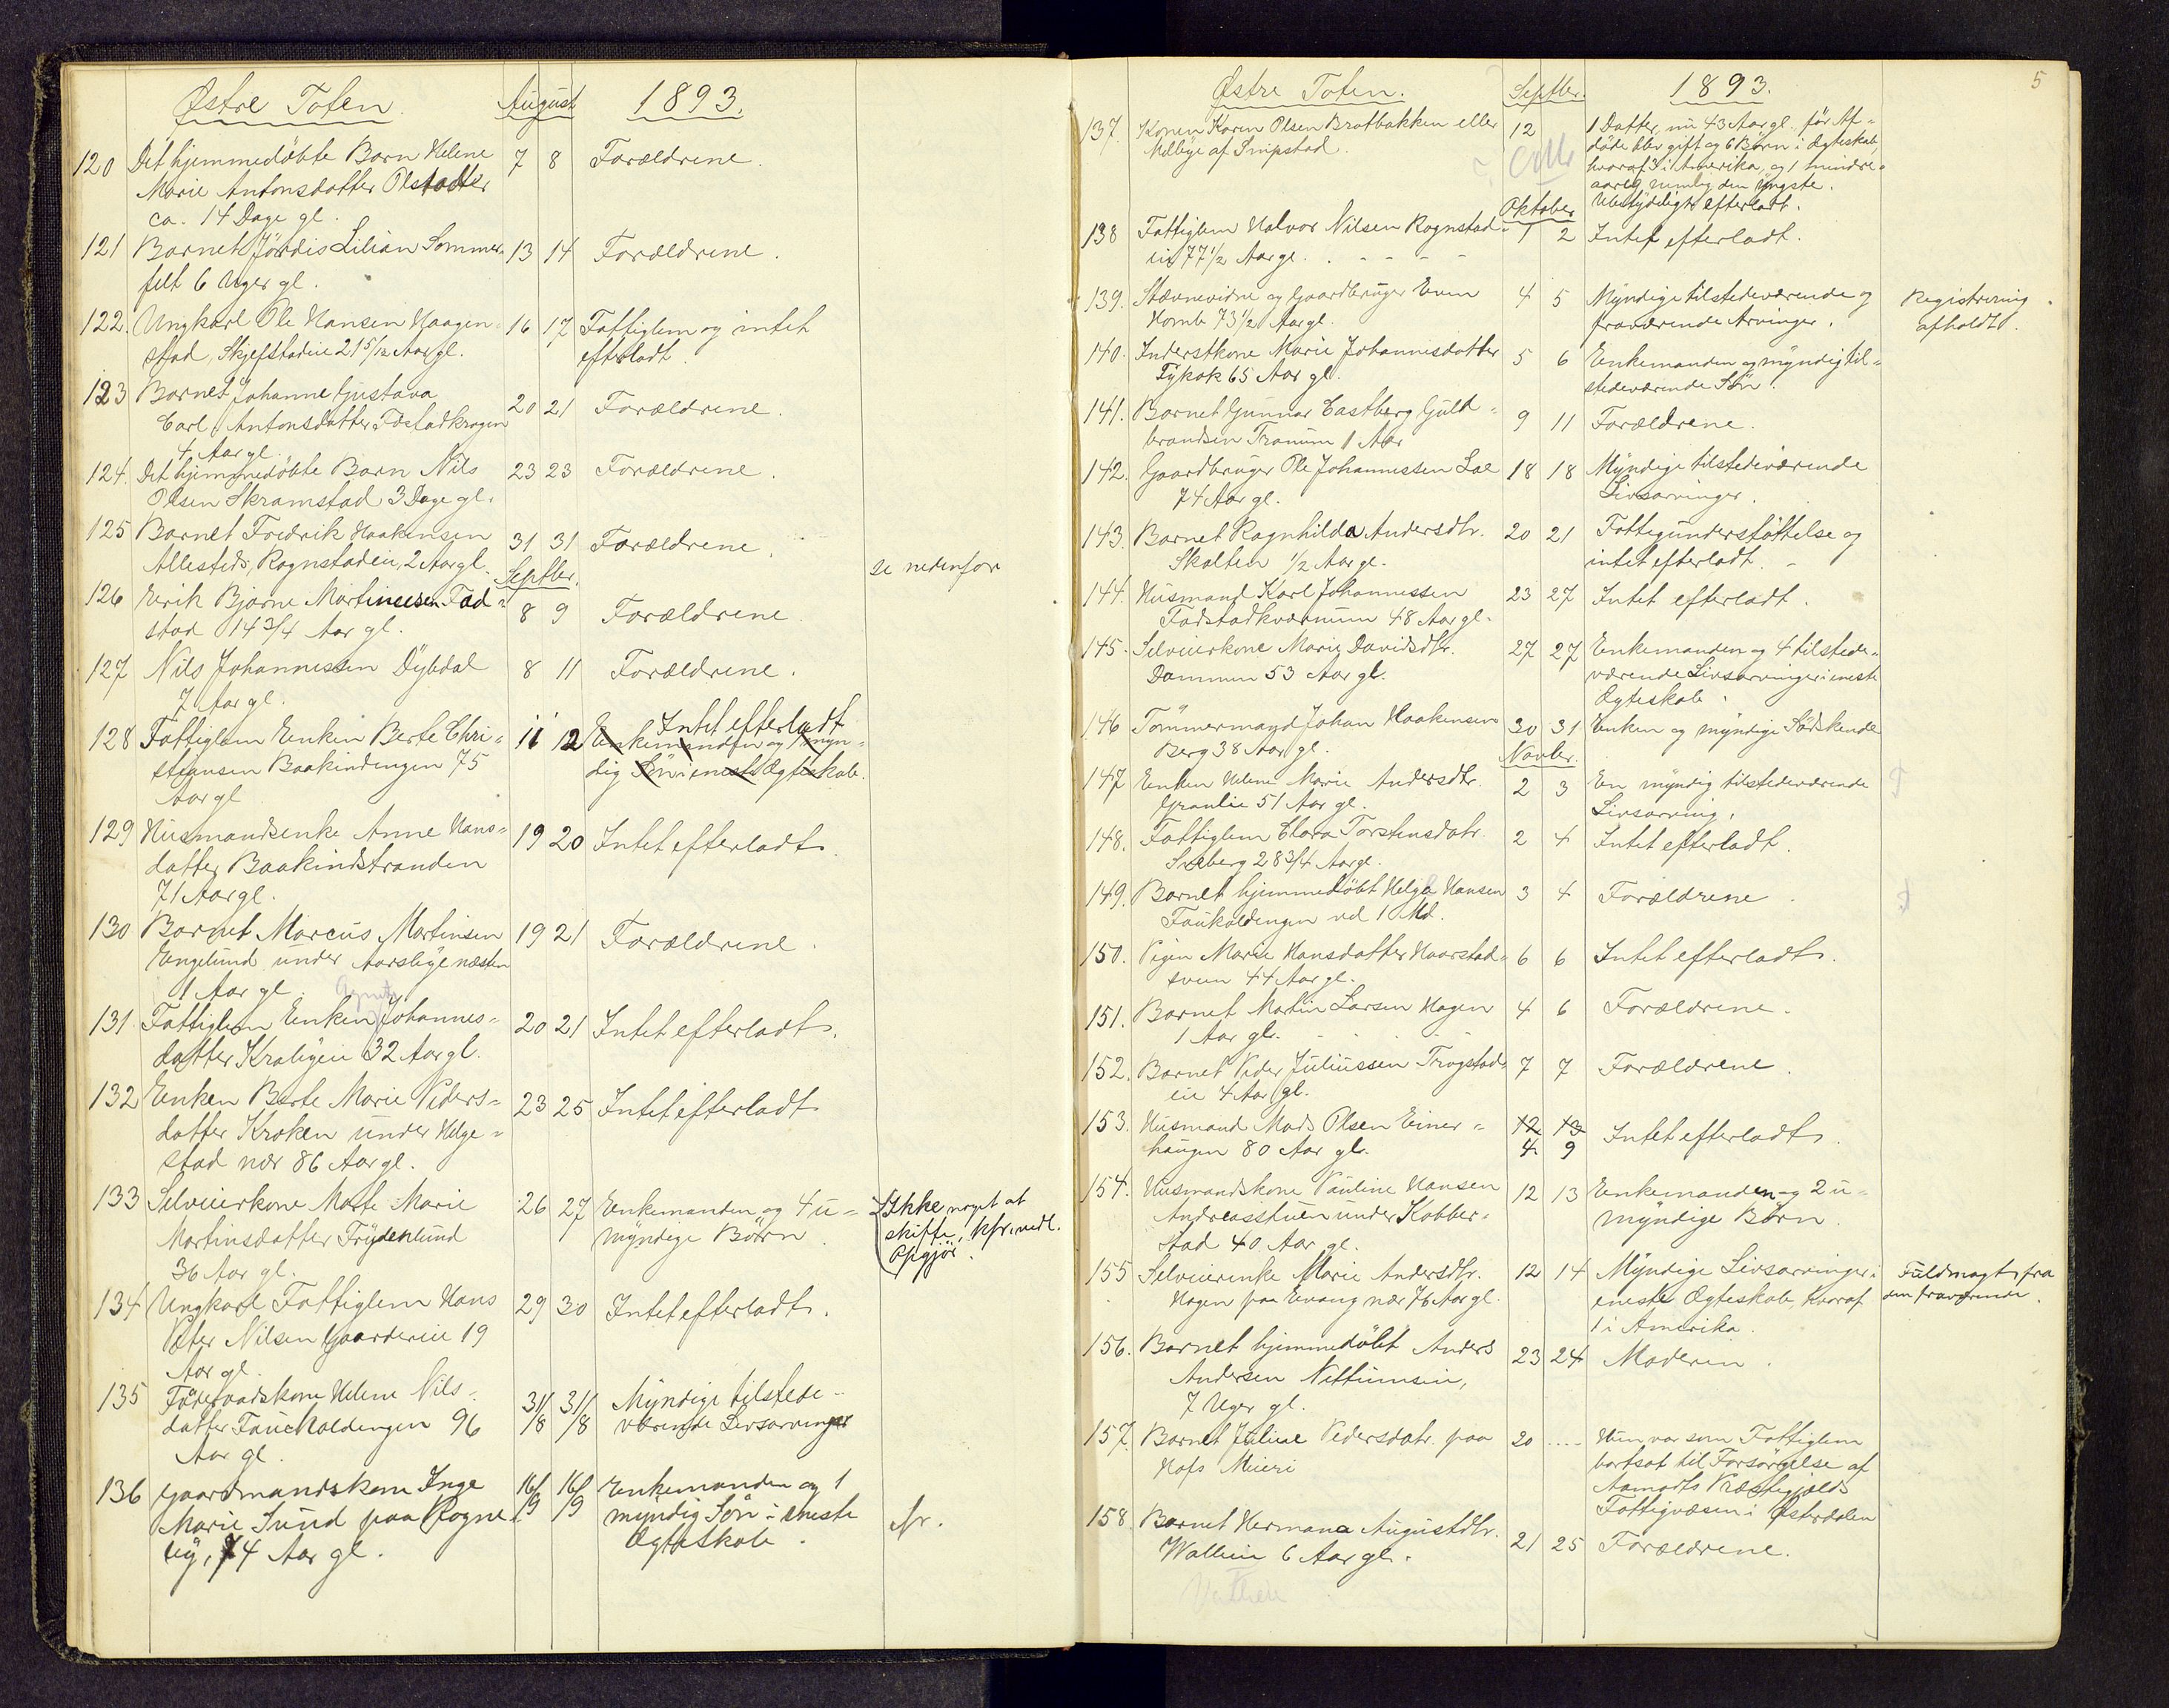 Østre Toten. August 1893.
120 Det hjemmedøbte Barn Helene 7 8 Forældrene.
Marie Antonsdatter Olstad
ca. 14 Dage gl.
121 Barnet Jørdis Lilian Sommer- 13 14 Forældrene.
felt 6 Uger gl.
122. Ungkarl Ole Hansen Haagen- 16 17 Fattiglem og intet
stad, Skjefstadeie 21 5/12 Aar gl. efterladt.
123 Barnet Johanne Gustava 20 21 Forældrene.
Carl Antonsdatter Fdstadkragen
4 Aar gl.
124. Det hjemmedøbte Barn Nils 23 23 Forældrene.
Olsen Skramstad 3 Dage gl.
125 Barnet Fredrik Haakensen 31 31 Forældrene.
Allesteds, Rognstadeie, 2 Aar gl. se nedenfor
Septbr.
126 Erik Bjarne Martinesen Fad- 8 9 Forældrene.
stad 14 3/4 Aar gl.
127 Nils Johannessen Dybdal 8 11 Forældrene.
7 Aar gl.
Intet efterladt
128 Fattiglem Enken Berte Chri- 11 12 Enkemanden og 1 myn-
stiansen Baakindengen 75 dig Søn i eneste Ægteskab.
Aar gl
129 Husmandsenke Anne Hans- 19 20 Intet efterladt.
datter Baakindstranden
71 Aar gl.
130 Barnet Marcus Martinsen 19 21 Forældrene.
Engelund under Aarslÿe næsten
1 Aar gl.
131 Fattiglem Enken Johannes- 20 21 Intet efterladt.
datter Krabyeie 32 Aar gl.
132 Enken Berte Marie Peders- 23 25 Intet efterladt
datter Kroken under Helge-
stad nær 86 Aar gl.
133 Selveierkone Marte Marie 26 27 Enkemanden og 4 u- Ikke noget at
Martinsdatter Frydenlund myndige Børn. skifte, kfr. vedl.
36 Aar gl. Opgjør.
134 Ungkarl Fattiglem Hans 29 30 Intet efterladt.
Peter Nilsen Gaardereie 19
Aar gl.
135 Føderaadskone Helene Nils- 31/8 31/8 Myndige tilstede-
datter Fauchaldengen 96 værende Livsarvinger
Aar gl.
136 Gaardmandskone Inge 16/9 16/9 Enkemanden og 1
Marie Sund paa Rogne- myndig Søn i eneste
by, 74 Aar gl. Ægteskab.
Østre Toten. Septbr. 1893. 5
137. Konen Karen Olsen Bratbakken eller 12 1 Datter, nu 43 Aar gl. før Af-
Melbye af Snipstad. døde blev gift og 6 Børn i Ægteskab,
hvoraf 3 i Amerika, og 1 mindre-
aarig nemlig den yngste.
Ubetydeligt efterladt.
Oktober
138 Fattiglem Halvor Nilsen Rognstad- 1 2 Intet efterladt.
eie 77 1/2 Aar gl.
139. Stævnevidne og Gaardbruger Even 4 5 Myndige tilstedeværende og Registrering
Homb 73 1/2 Aar gl. fraværende Arvinger. afholdt.
140. Inderstkone Marie Johannesdatter 5 6 Enkemanden og myndig til-
Tykok 65 Aar gl. stedeværende Søn.
141. Barnet Gunnar Castberg Guld- 9 11 Forældrene.
brandsen Tranum 1 Aar
142. Gaardbruger Ole Johannessen Lae 18 18 Myndige tilstedeværende
74 Aar gl. Livsarvinger.
143. Barnet Ragnhilda Andersdtr. 20 21 Fattigunderstøttelse og
Skolten 1/2 Aar gl. intet efterladt.
144. Husmand Karl Johannessen 23 27 Intet efterladt.
Fadstadkværnum 48 Aar gl.
145. Selveierkone Marie Davidsdtr. 27 27 Enkemanden og 4 tilstede-
Dammen 53 Aar gl. værende Livsarvinger i eneste
Ægteskab.
146 Tømmermand Johan Haakensen 30 31 Enken og myndige Sødskende
Berg 38 Aar gl.
Novbr.
147 Enken Helene Marie Andersdtr. 2 3 En myndig tilstedeværende
Granlie 51 Aar gl. Livsarving.
148. Fattiglem Clara Torstensdatr. 2 4 Intet efterladt.
Sveberg 28 3/4 Aar gl.
149. Barnet hjemmedøbt Helga Hansen 3 4 Forældrene.
Faukaldengen ved 1 Md.
150. Pigen Marte Hansdatter Haarstad- 6 6 Intet efterladt.
sveen 44 Aar gl.
151. Barnet Martin Larsen Hagen 4 6 Forældrene.
1 Aar gl.
152. Barnet Peder Juliussen Trogstad- 7 7 Forældrene.
eie 4 Aar gl.
153. Husmand Mads Olsen Einer- 12 13 Intet efterladt.
haugen 80 Aar gl. 4 9
154. Husmandskone Pauline Hansen 12 13 Enkemanden og 2 u-
Andreasstuen under Kobber- myndige Børn.
stad 40 Aar gl.
155 Selveierenke Marie Andersdtr. 12 14 Myndige Livsarvinger i Fuldmagt fra
Hagen paa Evang nær 76 Aar gl. eneste Ægteskab, hvoraf den fraværende.
1 i Amerika.
156. Barnet hjemmedøbt Anders 23 24 Moderen.
Andersen Nettumseie,
7 Uger gl.
157. Barnet Juline Pedersdatr. paa 20 .... Hun var som Fattiglem
Hofs Meieri bortsat til Forsørgelse af
Aamodts Præstegjælds
Fattigvæsen i Østerdalen
158. Barnet Hermana Augustdtr. 21 25 Forældrene.
Walleie 6 Aar gl.